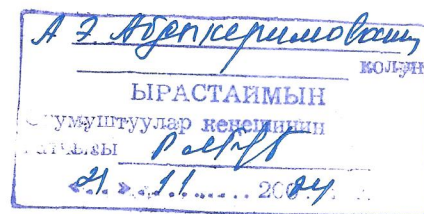 А.Э. Абдыкеримованын
колун
ЫРАСТАЙМЫН
жумуштуулар кеңешинин
катчысы
«21» 11 2024